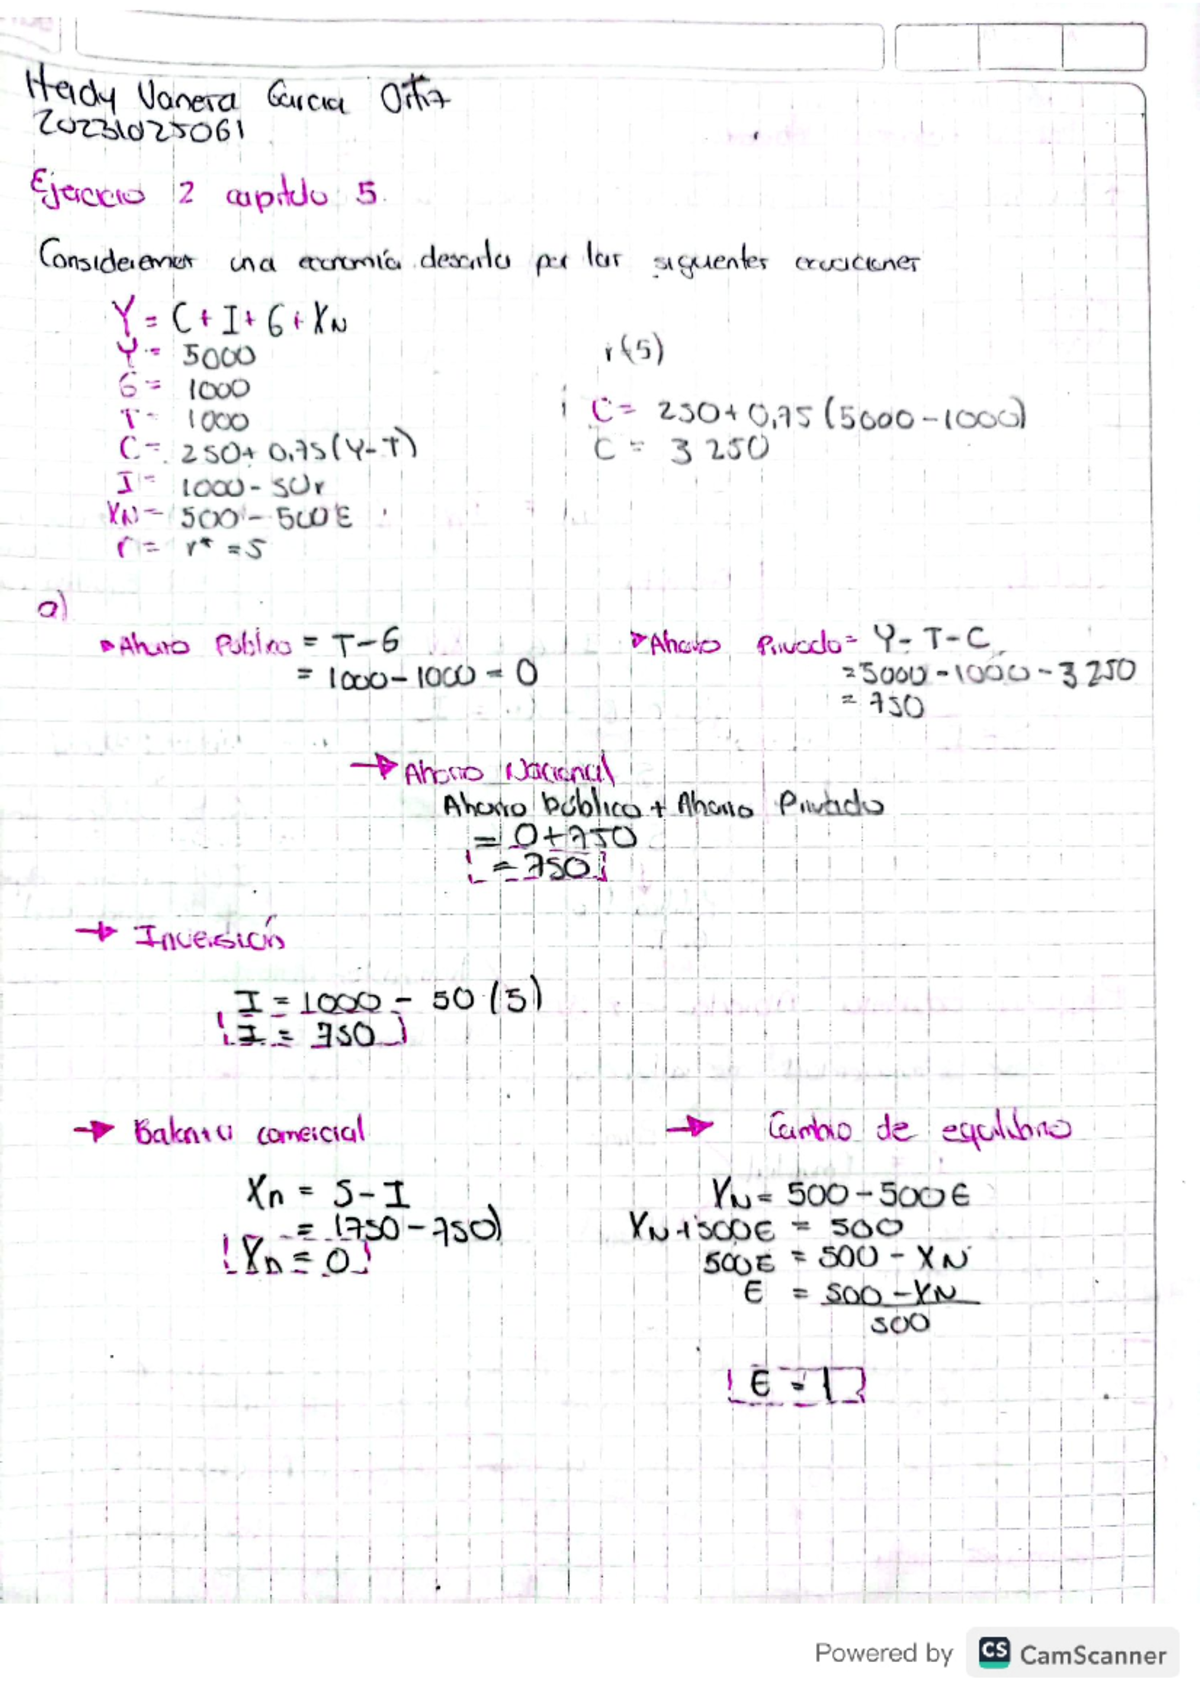 Heidy Vanesa Garcia Ortiz
20231025061
Ejercicio 2 capitulo 5.
Consideremos una economía descrita por las siguientes ecuaciones
Y = C + I + G + XN
Y = 5000
G = 1000
T = 1000
C = 250 + 0,75 (Y-T)
I = 1000 - 50r
XN = 500 - 500E
r = r* = 5
r (5)
C = 250 + 0,75 (5000-1000)
C = 3 250
a)
Ahorro Público = T-G
= 1000 - 1000 = 0
Ahorro Privado = Y - T - C
= 5000 - 1000 - 3 250
= 750
→ Ahorro Nacional
Ahorro público + Ahorro Privado
= 0 + 750
= 750
→ Inversión
I = 1000 - 50 (5)
I = 750
→ Balanza comercial
Xn = S - I
= (750 - 750)
Xn = 0
→ Cambio de equilibrio
XN = 500 - 500E
XN + 500E = 500
500E = 500 - XN
E = 500 - XN
500
E = 1
Powered by CS CamScanner